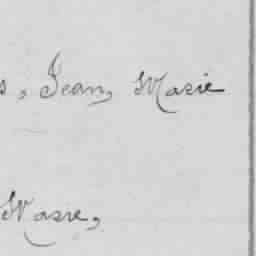 s, Jean, Marie
Marie,